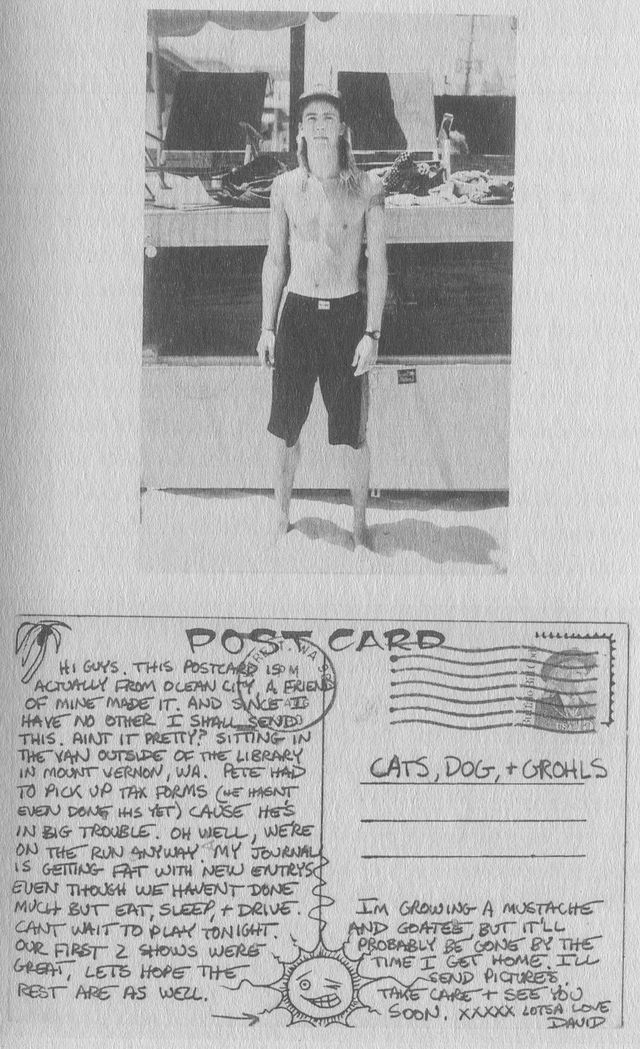 POST CARD
HI GUYS. THIS POSTCARD IS
ACTUALLY FROM OCEAN CITY. A FRIEND
OF MINE MADE IT. AND SINCE I
HAVE NO OTHER I SHALL SEND
THIS. AINT IT PRETTY? SITTING IN
THE VAN OUTSIDE OF THE LIBRARY
IN MOUNT VERNON, WA. PETE HAD
TO PICK UP TAX FORMS (HE HASNT
EVEN DONE HIS YET) CAUSE HE'S
IN BIG TROUBLE. OH WELL, WE'RE
ON THE RUN ANYWAY. MY JOURNAL
IS GETTING FAT WITH NEW ENTRYS
EVEN THOUGH WE HAVENT DONE
MUCH BUT EAT, SLEEP, + DRIVE.
CANT WAIT TO PLAY TONIGHT.
OUR FIRST 2 SHOWS WERE
GREAT, LETS HOPE THE
REST ARE AS WELL.
CATS, DOG, + GROHLS
IM GROWING A MUSTACHE
AND GOATEE, BUT IT'LL
PROBABLY BE GONE BY THE
TIME I GET HOME. I'LL
SEND PICTURES.
TAKE CARE + SEE YOU
SOON. XXXXX LOTSA LOVE
DAVID